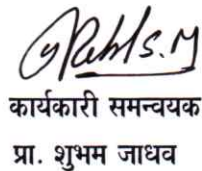 कार्यकारी समन्वयक
प्रा. शुभम जाधव